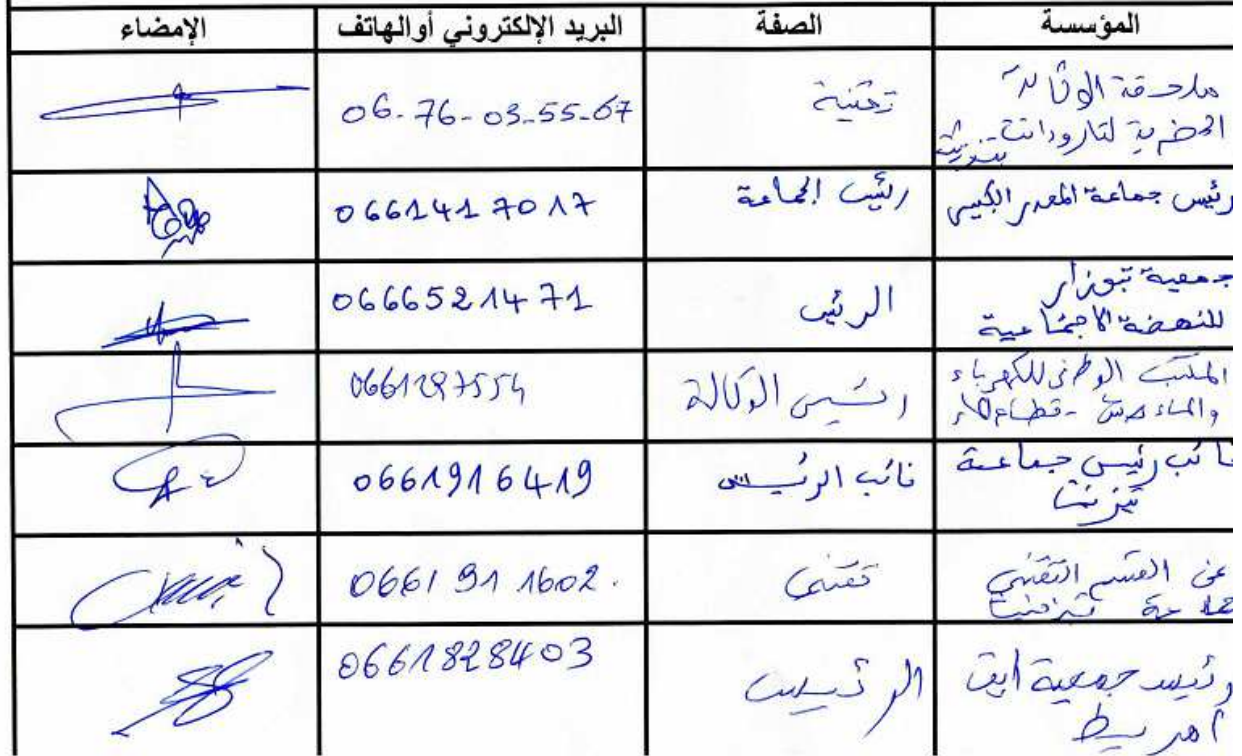 المؤسسة الصفة البريد الإلكتروني أوالهاتف الإمضاء
ملحقة الوكالة
الحضرية لتارودانت تقنية 06-76-03-55-67
بتزنيت
رئيس جماعة المعدر الكبير رئيس الجماعة 0661417017
جمعية
للنهضة الاجتماعية الرئيس 0666521471
المكتب الوطني للكهرباء
والماء قطاع رئيس الوكالة 0661297554
نائب رئيس جماعة
تيزنيت نائب الرئيس 0661916419
عن القسم التقني
جماعة تيزنيت تقني 0661911602.
رئيس جمعية
الرئيس 0661828403